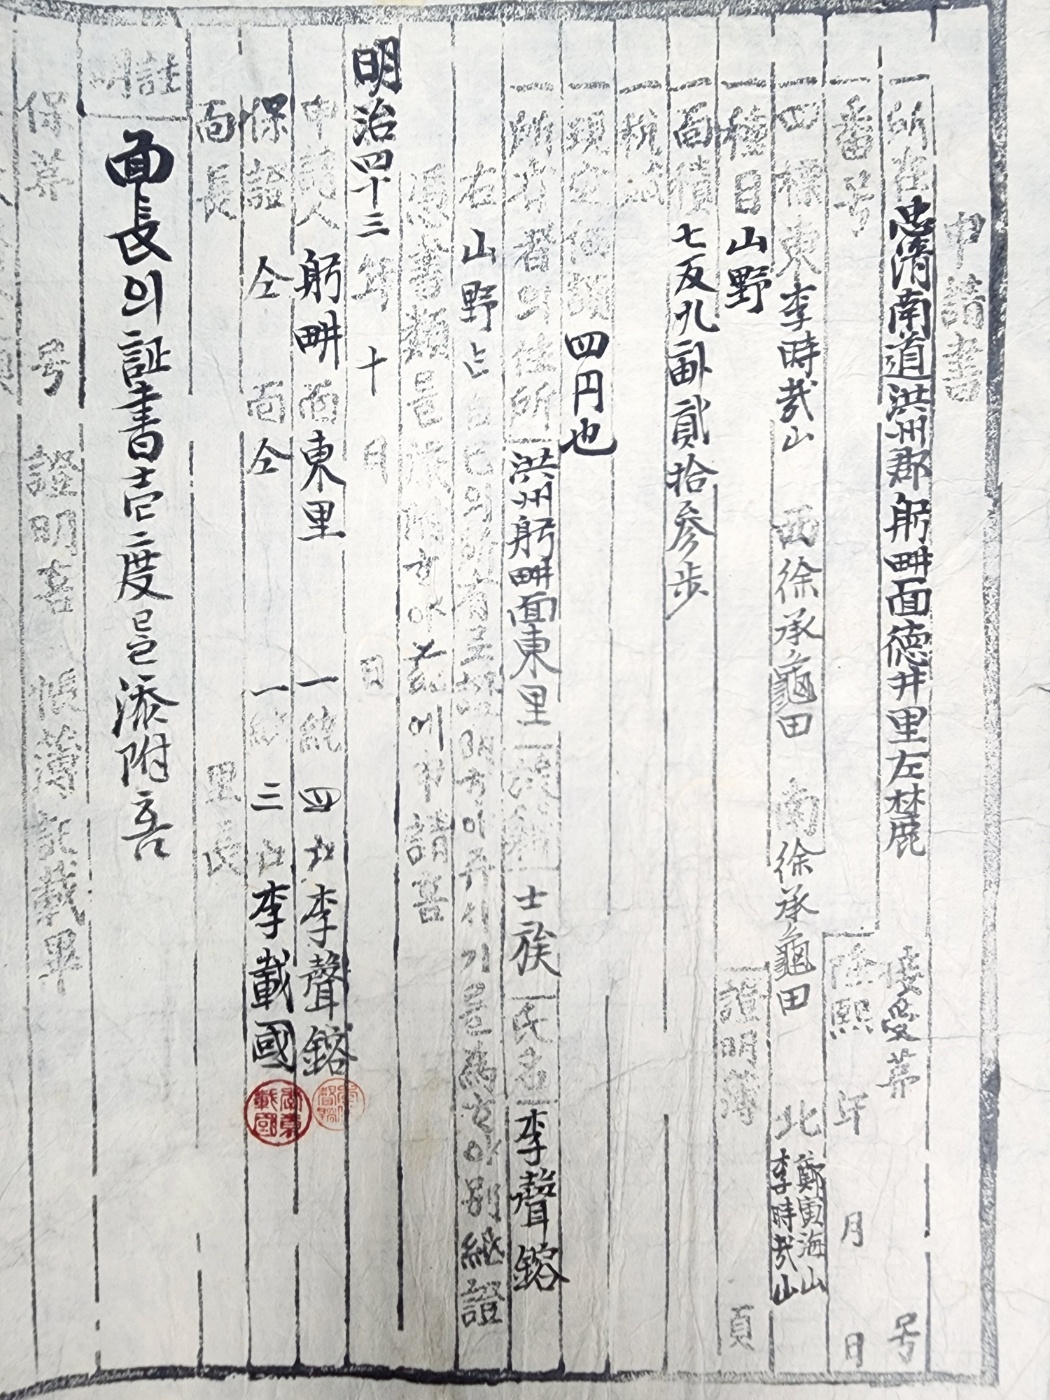 申請書
一 所在 忠清南道洪州郡躬畊面德井里左麓 接受第 号
番号 隆熙 年 月 日
一 四標 東李時哉山 西徐承龜田 南徐承龜田 北鄭寅海山 李時哉山
一 種目 山野 證明簿 頁
一 面積 七反九畝貳拾参步
一
一 現在價額 四円也
一 所有者의住所 洪州躬畊面東里 族 士族 氏名 李聲鎔
右山野는自己의所有로 證明하야주시기를爲하야別紙證
憑書類를添附하야玆에申請홈
明治四十三年 十月 日
申請人 躬畊面東里 一統四戶 李聲鎔
保證 仝面仝 一統三戶 李載國
面長 里長
證明
面長의証書壹度를添附홈
保第 号 證明홈 帳簿記載畢